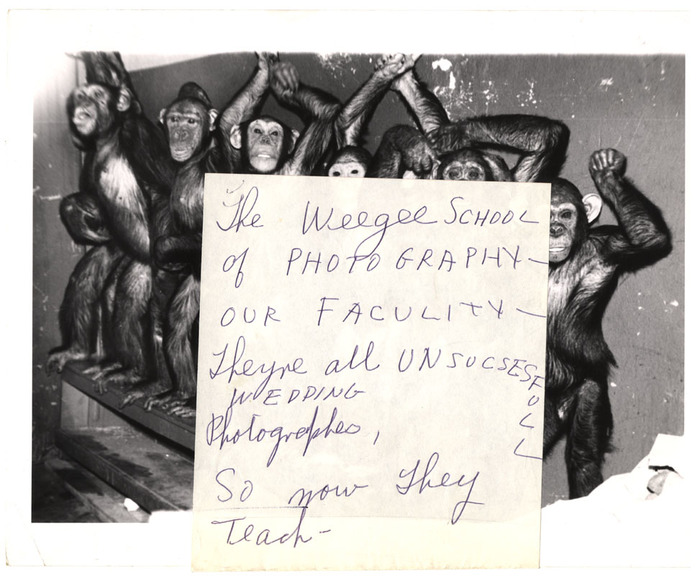 The Weegee SCHOOL
of PHOTOGRAPHY-
OUR FACULITY-
Theyre all UNSUCSESFULL
WEDDING
Photographes,
So now they
Teach-